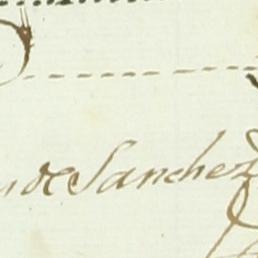 de Sanchez